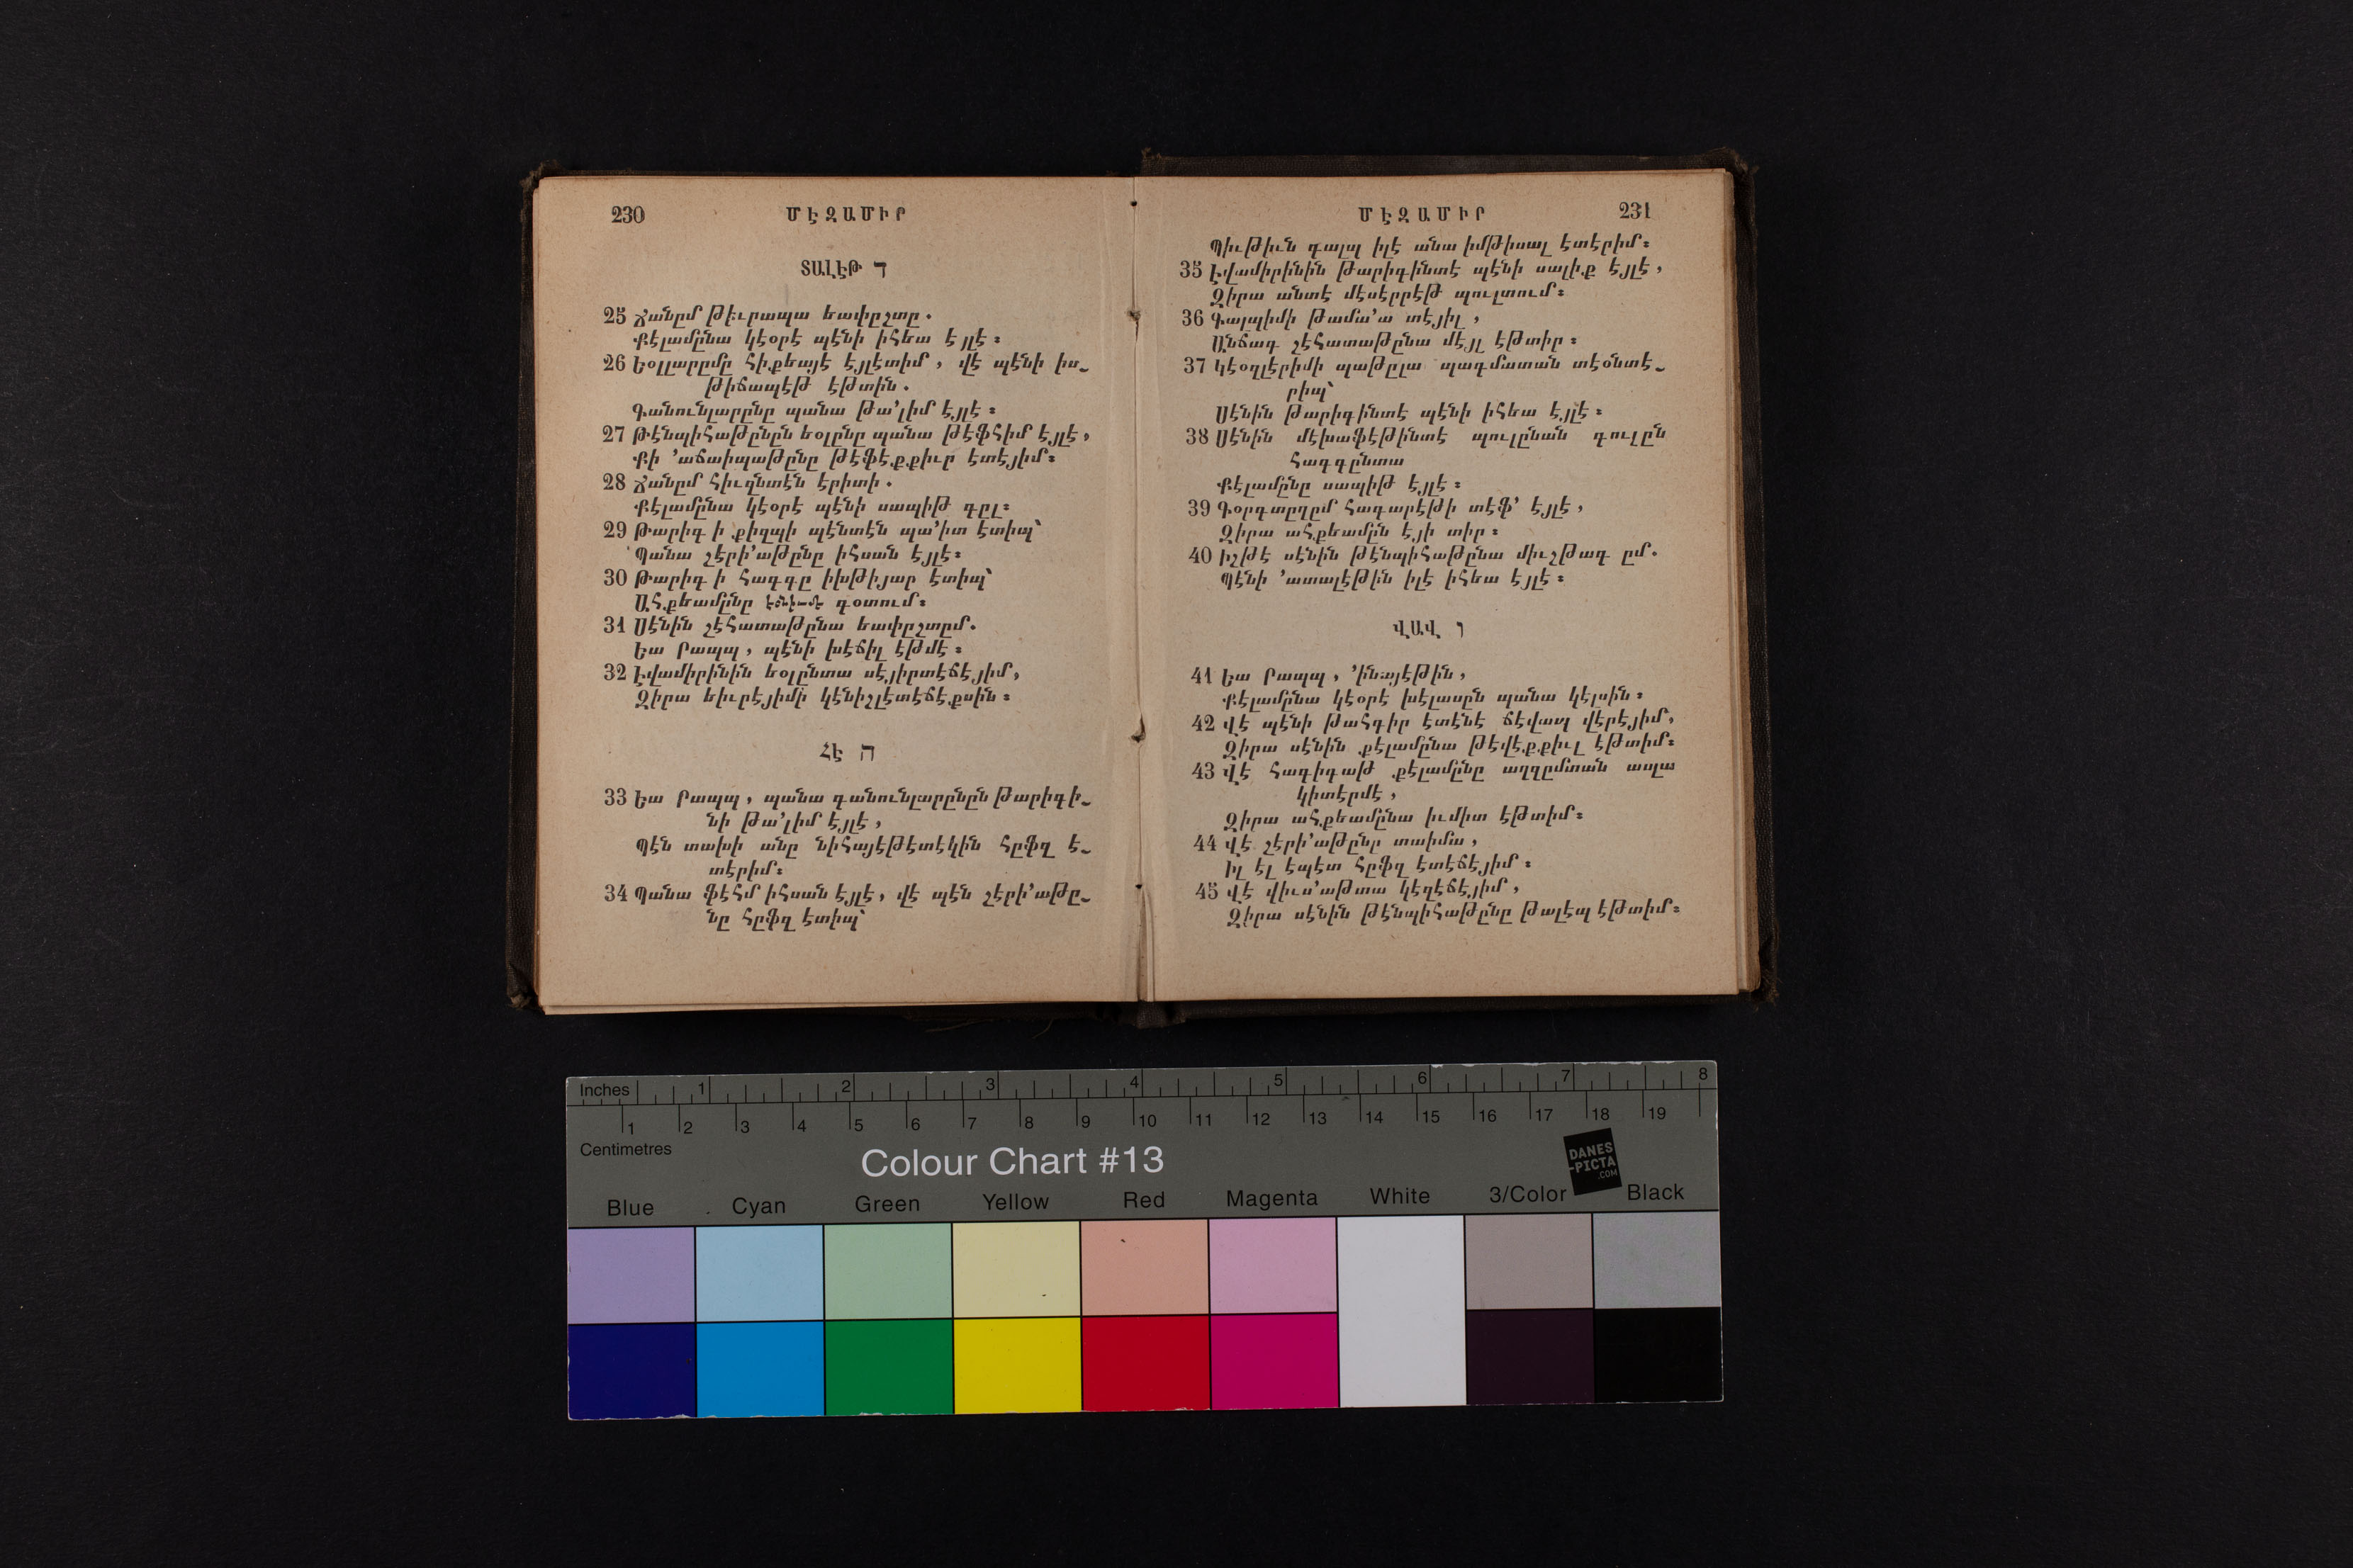 230 ՄԷԶԱՄԻՐ
ՏԱԼԷԹ ד
25 Ճանըմ թէւրապա եափըշտը.
Քէլամընա կէօրէ պէնի իհեա էյլէ։
26 Եօլլարըմը հիքեայէ էյլէտիմ, վէ պէնի իս֊
թիճապէթ էթտին.
Գանունլարընը պանա թա՚լիմ էյլէ։
27 Թէնպիհաթընըն եօլընը պանա թէֆհիմ էյլէ,
Քի ՚աճաիպաթընը թէֆէքքիւր էտէյիմ։
28 Ճանըմ հիւզնտէն էրիտի.
Քէլամընա կէօրէ պէնի սապիթ գըլ։
29 Թարիգ ի քիզպի պէնտէն պա՚իտ էտիպ՝
Պանա շէրի՚աթընը իհսան էյլէ։
30 Թարիգ ի հագգը իխթիյար էտիպ՝
Ահքեամընը գօտում։
31 Սէնին շէհատաթընա եափըշտըմ.
Եա Րապպ, պէնի խէճիլ էթմէ։
32 Էվամիրինին եօլընտա սէյիրտէճէյիմ,
Զիրա եիւրէյիմի կէնիշլէտէճէքսին։
ՀԷ ה
33 Եա Րապպ, պանա գանունլարընըն թարիգի֊
նի թա՚լիմ էյլէ,
Պէն տախի անը նիհայէթէտէկին հըֆզ է֊
տէրիմ։
34 Պանա ֆէհմ իհսան էյլէ, վէ պէն շէրի՚աթը֊
նը հըֆզ էտիպ՝
ՄԷԶԱՄԻՐ 231
Պիւթիւն գալպ իլէ անա իմթիսալ էտէրիմ։
35 Էվամիրինին թարիգինտէ պէնի սալիք էյլէ,
Զիրա անտէ մէսէրրէթ պուլտում։
36 Գալպիմի թամա՚ա տէյիլ,
Անճագ շէհատաթընա մէյլ էթտիր։
37 Կէօզլէրիմի պաթըլա պագմատան տէօնտէ֊
րիպ՝
Սէնին թարիգինտէ պէնի իհեա էյլէ։
38 Սէնին մէխաֆէթինտէ պուլընան գուլըն
հագգընտա
Քէլամընը սապիթ էյլէ։
39 Գօրգտըղըմ հագարէթի տէֆ՚ էյլէ,
Զիրա ահքեամըն էյի տիր։
40 Իշթէ սէնին թէնպիհաթընա միւշթագ ըմ.
Պէնի ՚ատալէթին իլէ իհեա էյլէ։
ՎԱՎ ו
41 Եա Րապպ, ՚ինայէթին,
Քէլամընա կէօրէ խէլասըն պանա կէլսին։
42 Վէ պէնի թահգիր էտէնէ ճէվապ վէրէյիմ,
Զիրա սէնին քէլամընա թէվէքքիւլ էթտիմ։
43 Վէ հագիգաթ քէլամընը աղզըմտան ասլա
կիտէրմէ,
Զիրա ահքեամընա իւմիտ էթտիմ։
44 Վէ շէրի՚աթընը տաիմա,
Իլ էլ էպէտ հըֆզ էտէճէյիմ։
45 Վէ վիւս՚աթտա կէզէճէյիմ,
Զիրա սէնին թէնպիհաթընը թալէպ էթտիմ։
Inches 1 2 3 4 5 6 7 8
1 2 3 4 5 6 7 8 9 10 11 12 13 14 15 16 17 18 19
Centimetres
Colour Chart #13
DANES
-PICTA
.COM
Blue Cyan Green Yellow Red Magenta White 3/Color Black